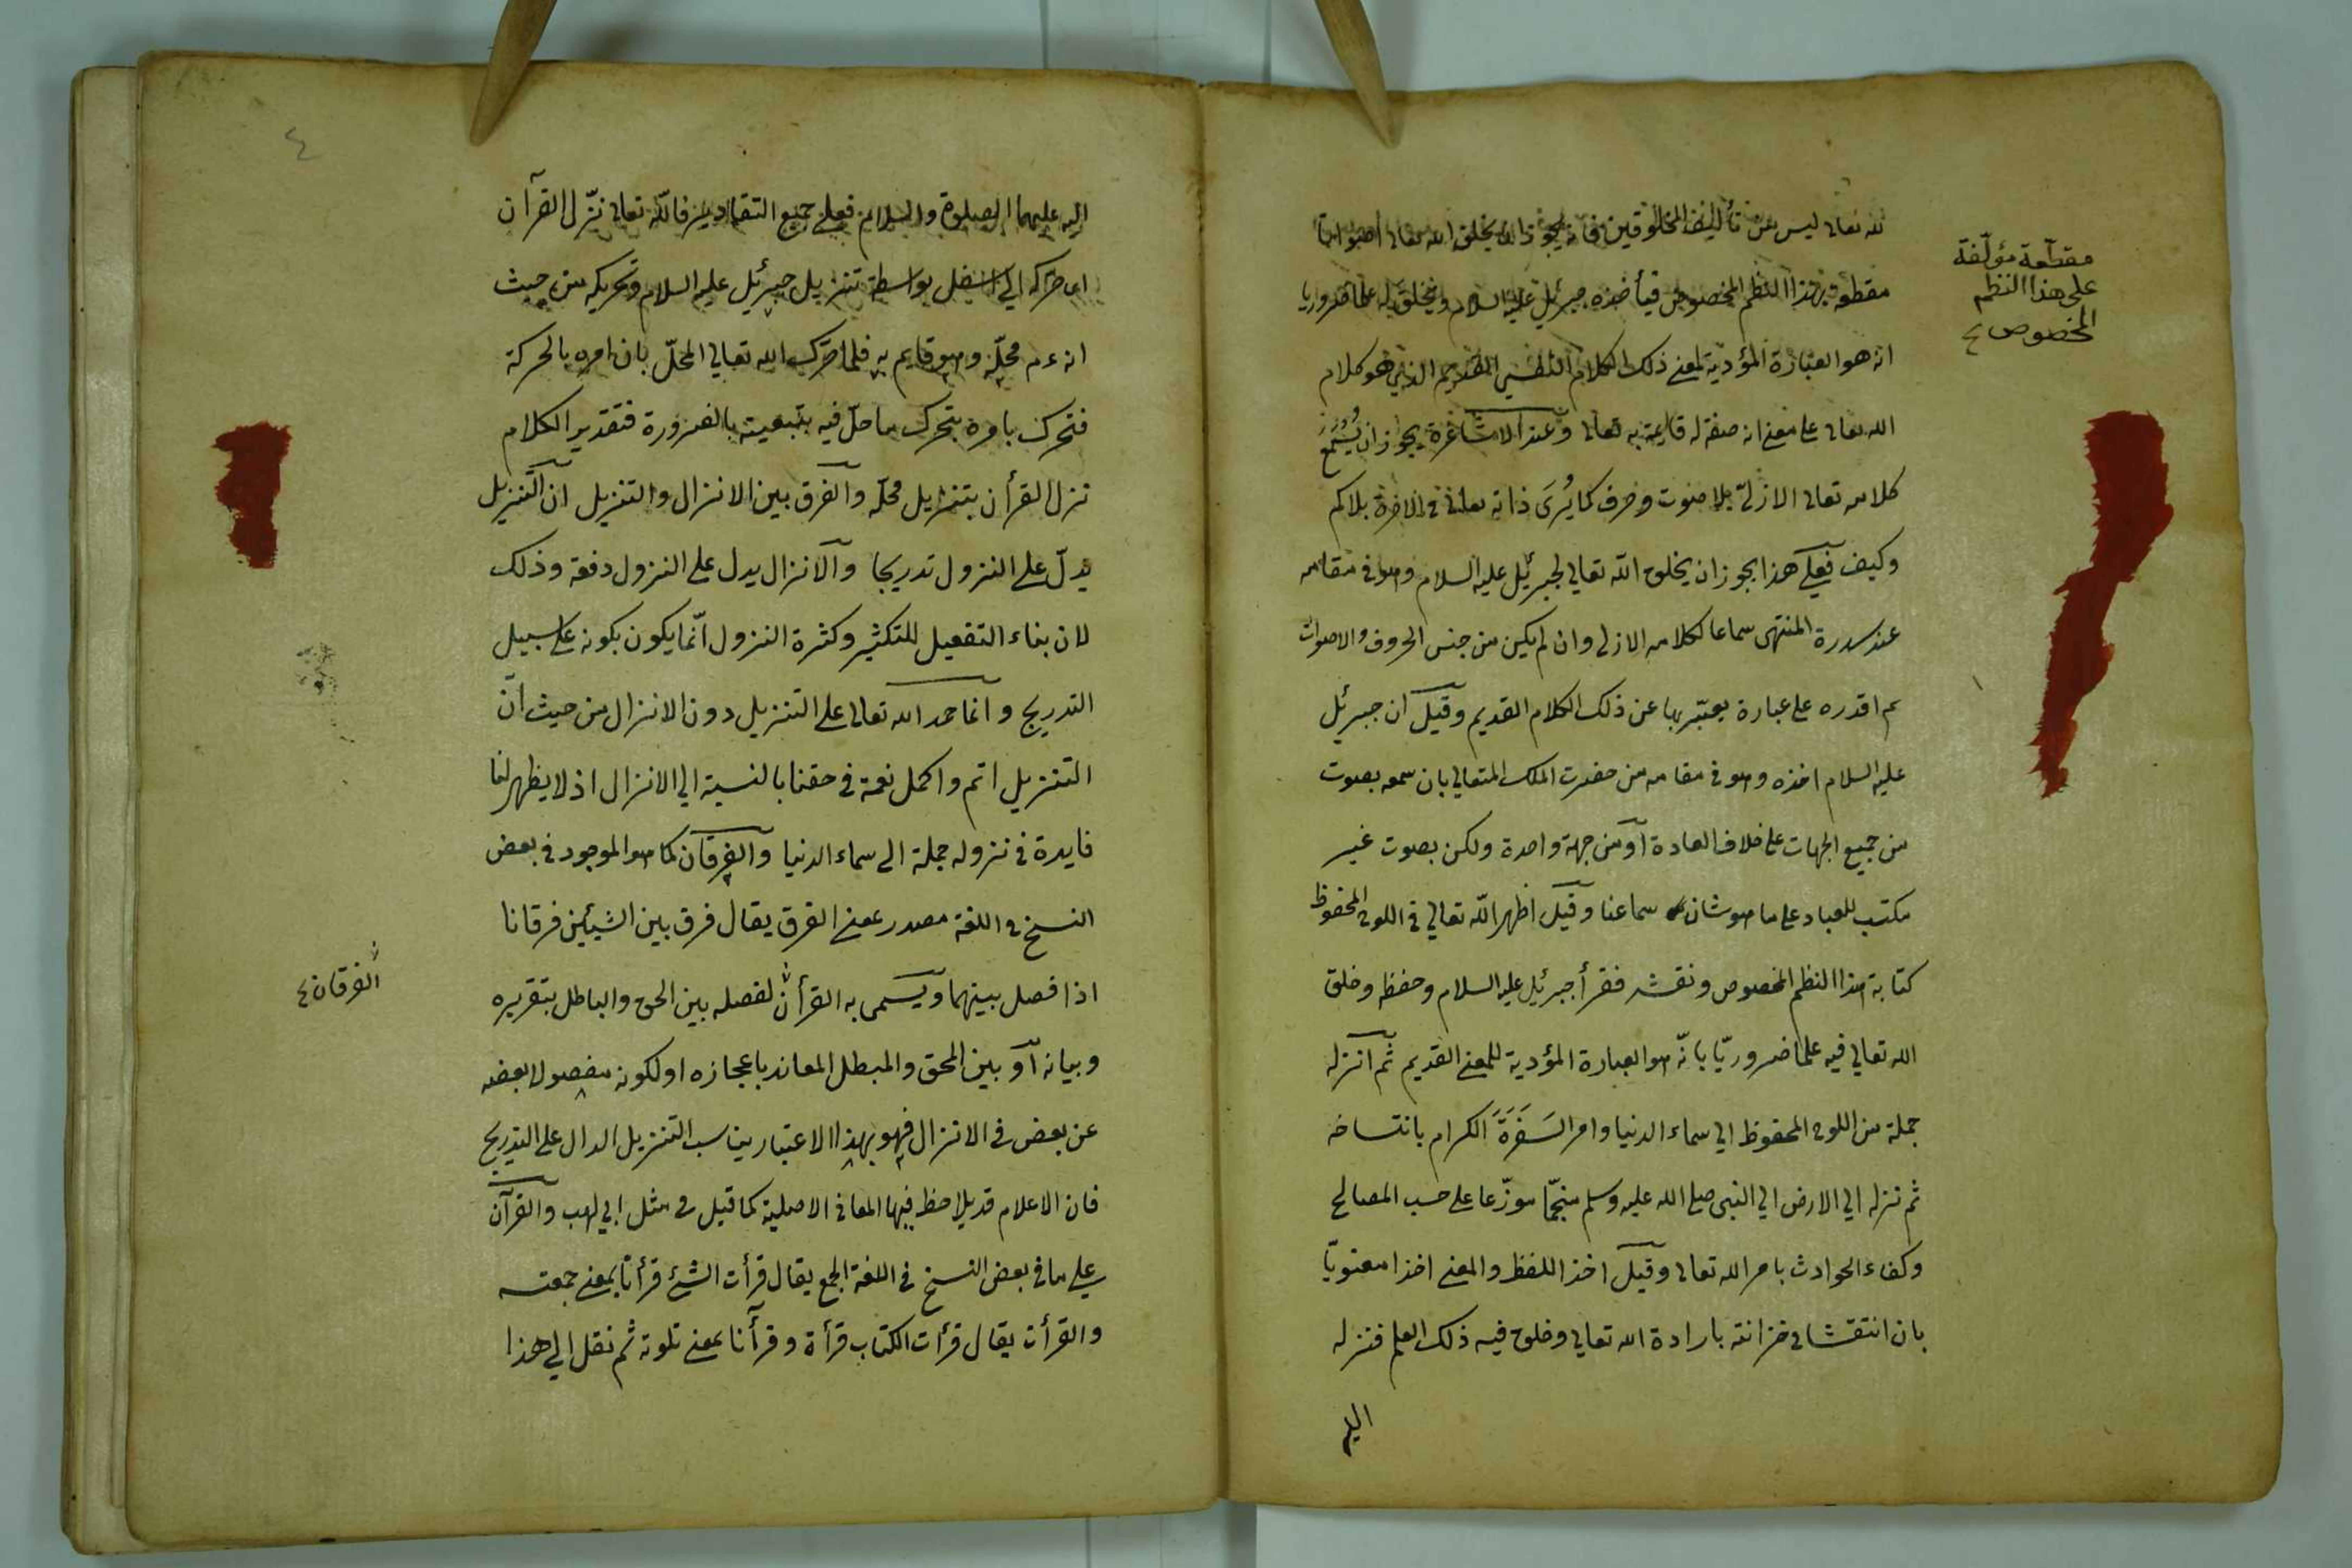 لله تعالى ليس من تأليف المخلوقين فانه يجوز ان يخلق الله تعالى اصواتا
مقطعة بهذا النظم المخصوص فيأخذه جبرئيل عليه السلام ويخلق له علما ضروريا
انه هو العبارة المؤدية لمعنى ذلك الكلام النفسي القديم الذي هو كلام
الله تعالى على معنى انه صفة له قايمة به تعالى وعند الاشاعرة يجوز ان يُسْمَعَ
كلامه تعالى الازلى بلا صوت وحرف كما يُرَى ذاته تعالى فى الاخرة بلا كم
وكيف فعلى هذا يجوز ان يخلق الله تعالى لجبرئيل عليه السلام وهو فى مقامه
عند سدرة المنتهى سماعا لكلامه الازلى وان لم يكن من جنس الحروف والاصوات
ثم اقدره على عبارة يعبّر بها عن ذلك الكلام القديم وقيل ان جبرئيل
عليه السلام اخذه وهو فى مقامه من حضرت الملك المتعالى بان سمعه بصوت
من جميع الجهات على خلاف العادة او من جهة واحدة ولكن بصوت غير
مكتسب للعباد على ما هو شان سماعنا وقيل اظهر الله تعالى فى اللوح المحفوظ
كتابة هذا النظم المخصوص ونقشه فقرأ جبرئيل عليه السلام وحفظه وخلق
الله تعالى فيه علما ضروريّا بانّه هو العبارة المؤدية للمعنى القديم ثم انزله
جملة من اللوح المحفوظ الى سماء الدنيا وامر السَفَرَةَ الكرام بانتساخه
ثم نزله الى الارض الى النبى صلى الله عليه وسلم منجّما موزّعا على حسب المصالح
وكفاء الحوادث بامر الله تعالى وقيل اخذ اللفظ والمعنى اخذا معنويّا
بان انتقشا فى خزانته بارادة الله تعالى وخلق فيه ذلك العلم فنزله
اليه
مقطعة مؤلفة
على هذا النظم
المخصوص
٤
اليه عليهما الصلوة والسلام فعلى جميع التقادير فالله تعالى نزّل القرآن
اى حركه الى اسفل بواسطة تنزيل جبرئيل عليه السلام وتحريكه من حيث
انه محلّه وهو قايم به فلما حرّك الله تعالى المحلّ بان امره بالحركة
فتحرك بامره يتحرك ما حلّ فيه بتبعيته بالضرورة فتقدير الكلام
نزل القرأن بتنزيل محلّه والفرق بين الانزال والتنزيل ان التنزيل
يدلّ على النزول تدريجا والانزال يدل على النزول دفعة وذلك
لان بناء التفعيل للتكثير وكثرة النزول انّما يكون بكونه على سبيل
التدريج وانما حمد الله تعالى على التنزيل دون الانزال من حيث انّ
التنزيل اتم واكمل نعمة فى حقنا بالنسبة الى الانزال اذ لا يظهر لنا
فايدة فى نزوله جملة الى سماء الدنيا والفرقان كما هو الموجود فى بعض
النسخ فى اللغة مصدر بمعنى الفرق يقال فرق بين الشيئين فرقانا
اذا فصل بينهما ويسمى به القرأن لفصله بين الحق والباطل بتقريره
وبيانه او بين المحق والمبطل المعاند باعجازه او لكونه مفصولا بعضه
عن بعض فى الانزال فهو بهذا الاعتبار يناسب التنزيل الدال على التدريج
فان الاعلام قد يلاحظ فيها المعانى الاصلية كما قيل فى مثل ابى لهب والقرآن
على ما فى بعض النسخ فى اللغة الجمع يقال قرأت الشئ قرأنا بمعنى جمعته
والقرأت يقال قرأت الكتاب قرأة وقرأنا بمعنى تلوته ثم نقل الى هذا
الفرقان